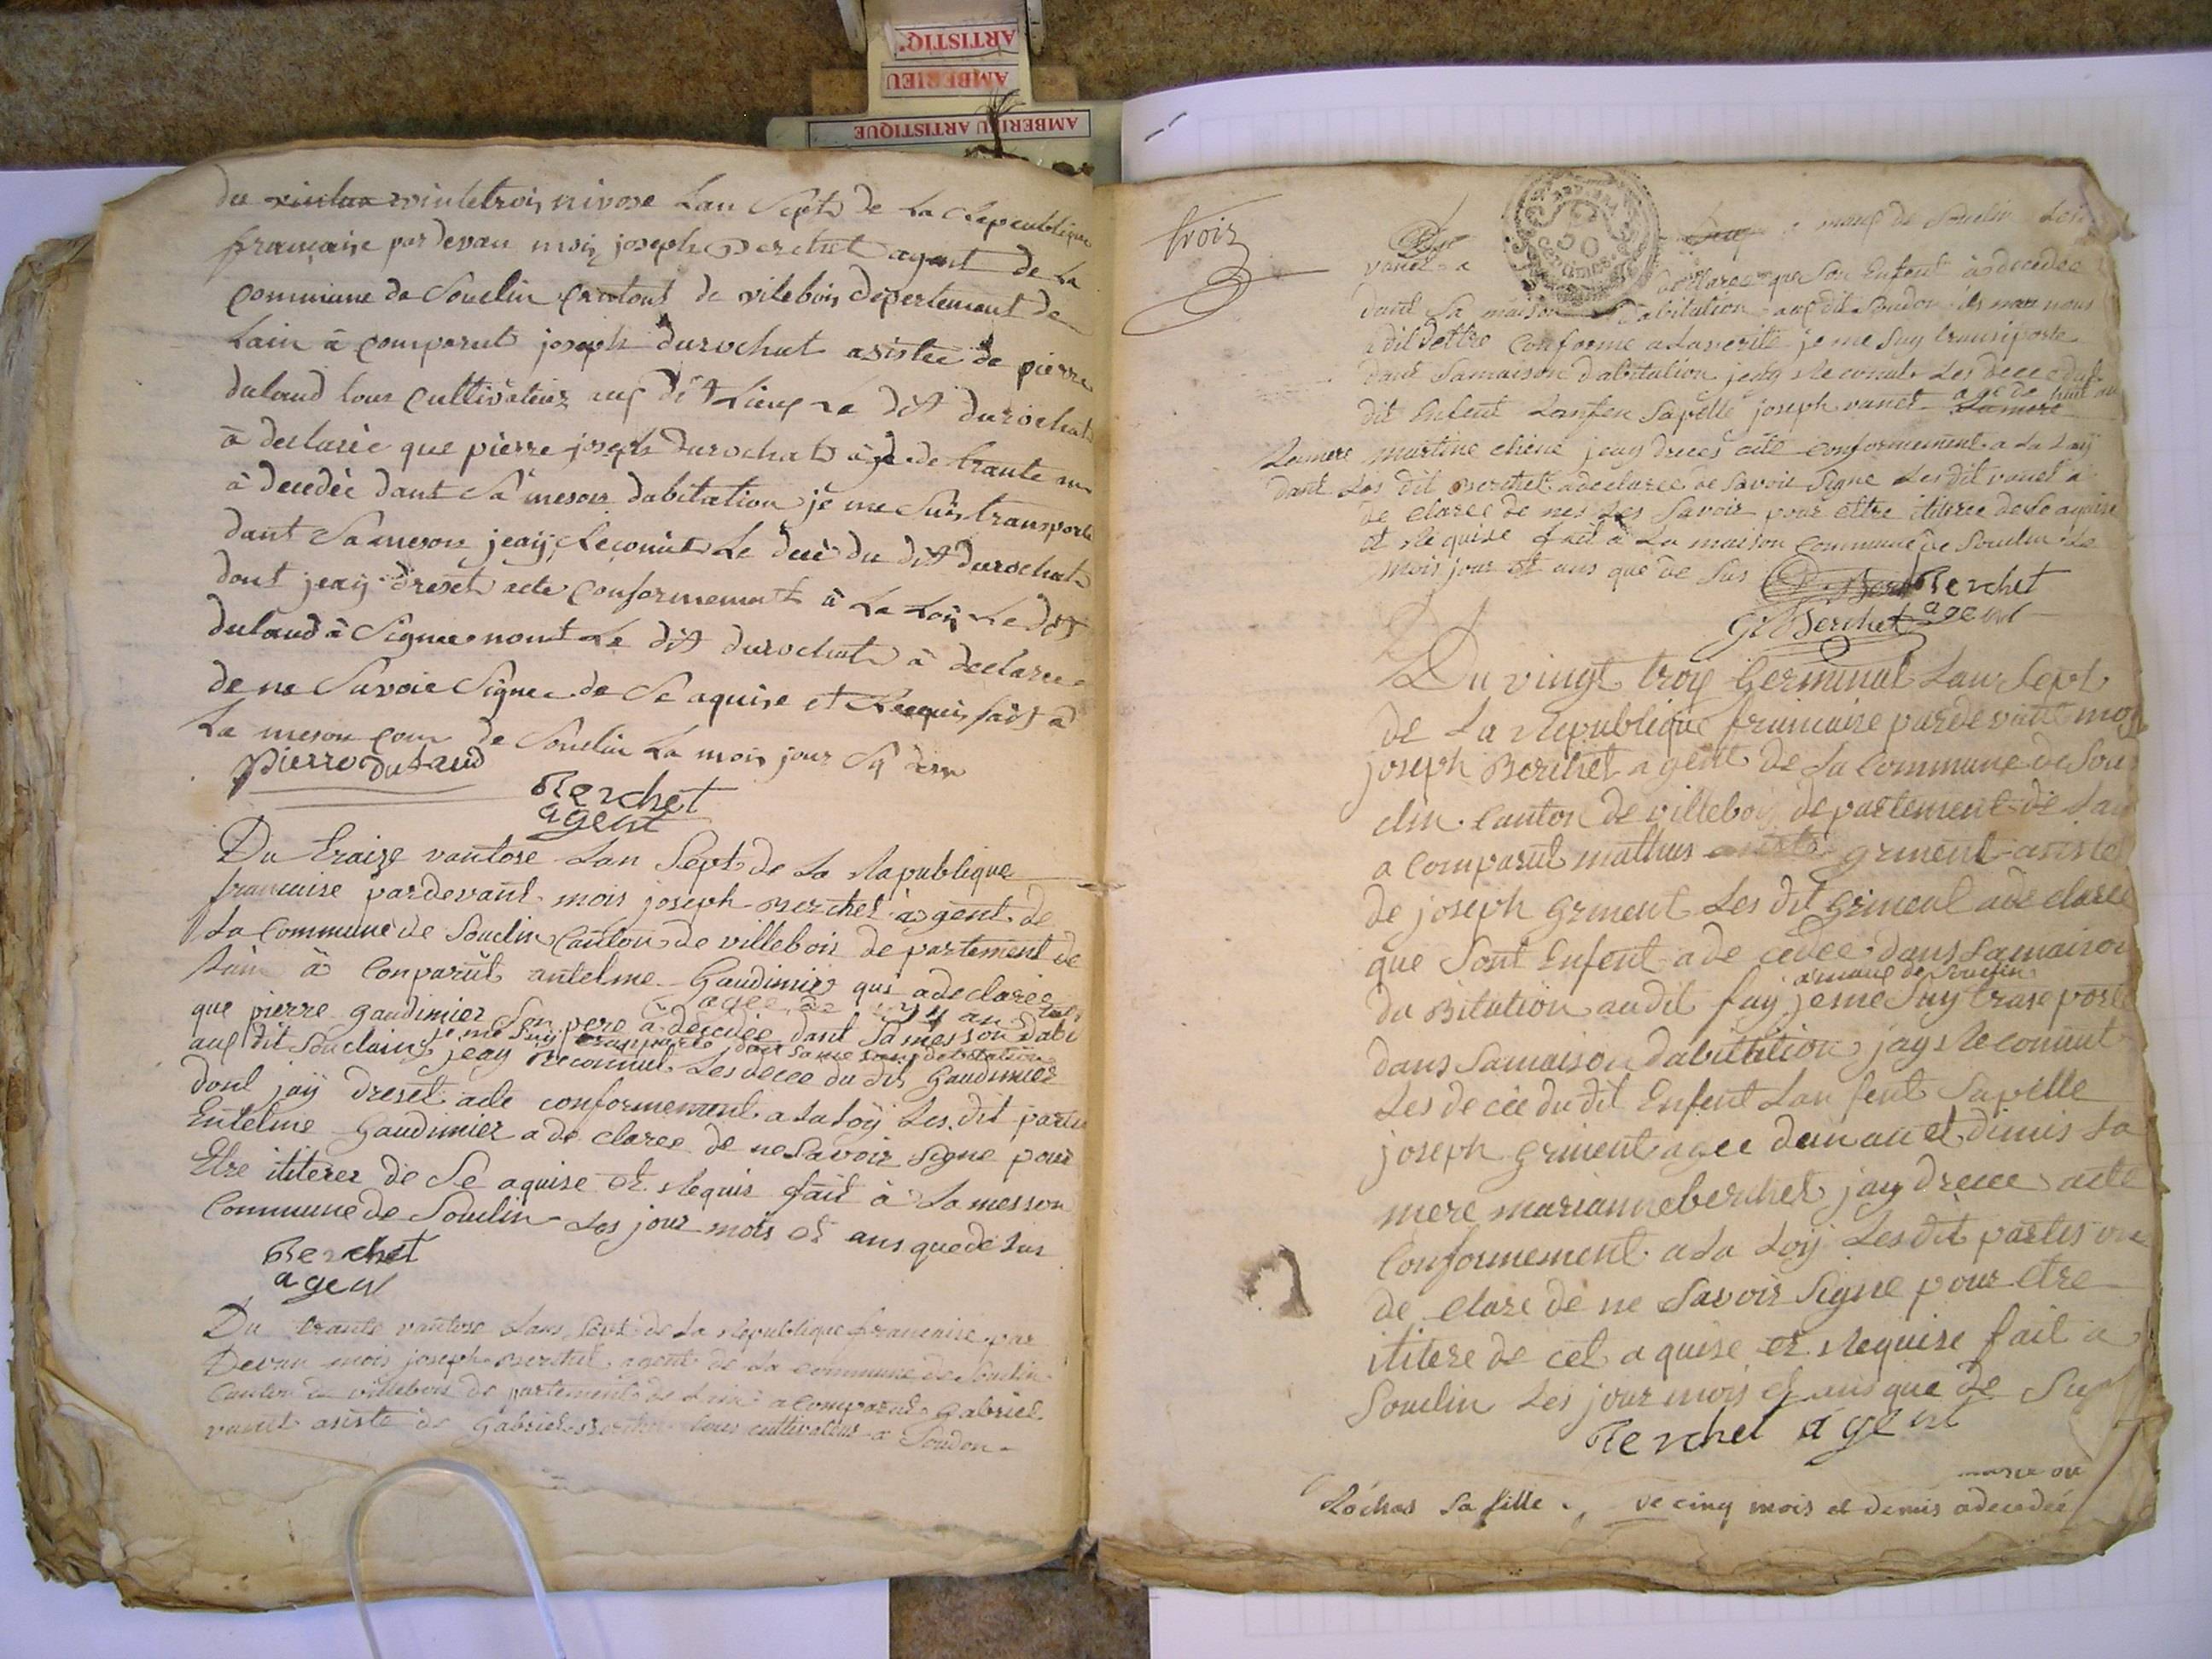 ARTISTIQ'
AMBERIEU
AMBERIEU ARTISTIQUE
du vintetrois nivose Lan Sept de La Republique
francaise par devan mois joseph Berchet agent de La
Commune de Souclin Cantont de vilebois departement de
Lain à comparut joseph durochat asistée de pierre
dulaud tous Cultivateur auf dit Lieuf Le dit durochat
à declarée que pierre joseph durochat âge de trante un
à decedée dant Sa meson dabitation je me Suis transporte
dant Sa meson jeay Reconut Le decé du dit durochat
dont jeay dreset acte Conformement à La Loy Le dit
dulaud à Signee nont Le dit durochat à declaree
de ne Savoie Signee de Se aquise et Requis fait à
La meson com de Souclin La mois jour
pierre dulaud
Berchet
agent
Du traize vantose Lan Sept de La Republique
francaise pardevant mois joseph Berchet agent de
La Commune de Souclin Canton de villebois departement de
Lain à Conparut antelme Gaudimier qui a declarée
que pierre gaudimier Son pere a decedée dant Sa messon dabi
agee de
auf dit Souclain jeay reconnut Les decee du dit Gaudimier
je me Suy transporte dant Sa me son dabitation
dont jay dreset acte conformement a La Loy Les dit partie
Entelme Gaudimier a de claree de ne Savoir Signe pour
Etre ititerer de Se aquise et Requis fait à La messon
Commune de Souclin Les jour mois et ans que de Sus
Berchet
agent
Du trante vantose Lans Sept de La Republique francaise par
Devan mois joseph Berchet agent de La Commune de Souclin
Canton de villebois de partement de Lain a Comparut Gabriel
vanet asiste de Gabriel Berchet tous cultivateur a Soudon
trois
50
centimes
mauf de Souclin Les
vanet a declaree que Son Enfent à decedee
dant Sa maison dabitation auf dit Soudon ils man nous
a dit dettre Conforme a La verite je me Suy transporte
dans Samaison dabitation jeay Reconut Les decee dut
dit Enfent Lanfen Sapelle joseph vanet age de huit an
Lamere
Lamere martine chene jeay drece acte conformement a La Loy
dant Les dit Berchet a declaree de Savoir Signe Les dit vanet a
de claree de nes Les Savoir pour ettre ititeree de Se aquise
et Requise fait à La maison Commune de Souclin Le
mois jour et ans que de Sus Berchet
G Berchet agent
Du vingt troy Germinal Lan Sept
de La Republique francaise pardevant moy
joseph Berchet agent de La Commune de Sou
clin Canton de villeboy departement de Lain
a Comparut mathus griment asiste
de joseph griment Les dit griment a declaree
que Sont Enfent a de cedee dans Samaison
amauf de Souclin
da Bitation audit fay jeme Suy transporte
dans Samaison dabitation jay Reconnut
Les decée du dit Enfent Lan fent Sapelle
joseph griment agee dun an et dimis La
mere marianne berchet jay drece acte
Conformement a La Loy Les dit parties on
de clare de ne Savoir Signe pour etre
ititere de cet aquise et Requise fait a
Souclin Les jour mois et ans que de Sus
Berchet agent
Rochas Sa fille de cinq mois et demis a decedée